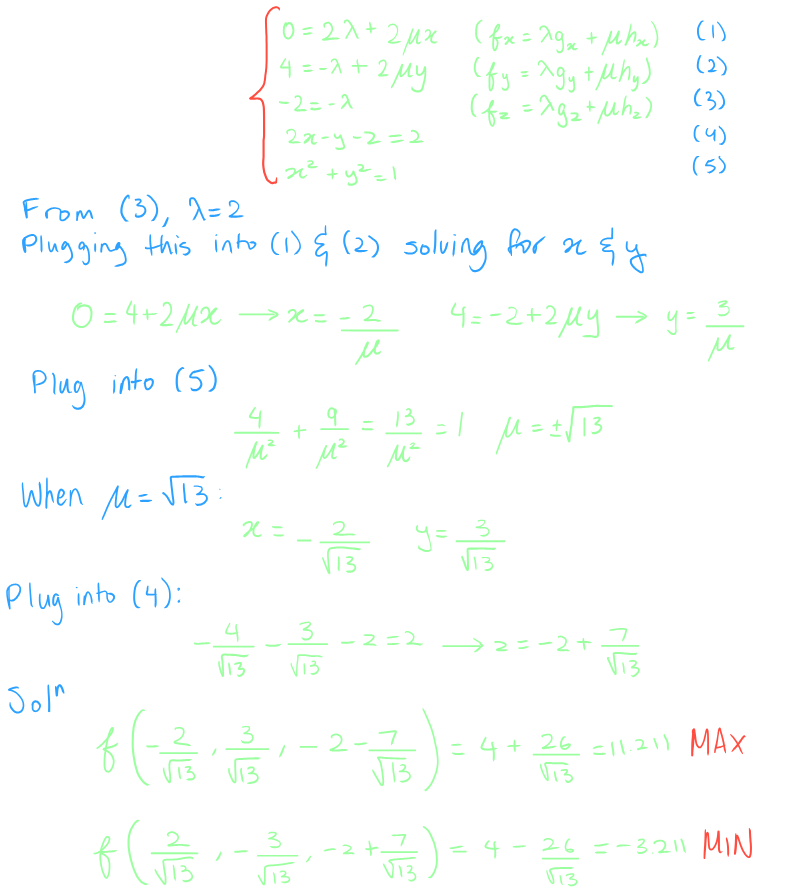 0 = 2λ + 2μx (fx = λgx + μhx) (1)
4 = -λ + 2μy (fy = λgy + μhy) (2)
-2 = -λ (fz = λgz + μhz) (3)
2x - y - z = 2 (4)
x² + y² = 1 (5)
From (3), λ=2
Plugging this into (1) & (2) solving for x & y
0 = 4 + 2μx → x = -2/μ 4 = -2 + 2μy → y = 3/μ
Plug into (5)
4/μ² + 9/μ² = 13/μ² = 1 μ = ±√13
When μ = √13 :
x = -2/√13 y = 3/√13
Plug into (4):
-4/√13 - 3/√13 - z = 2 → z = -2 + 7/√13
Solⁿ
f(-2/√13, 3/√13, -2 - 7/√13) = 4 + 26/√13 = 11.211 MAX
f(2/√13, -3/√13, -2 + 7/√13) = 4 - 26/√13 = -3.211 MIN